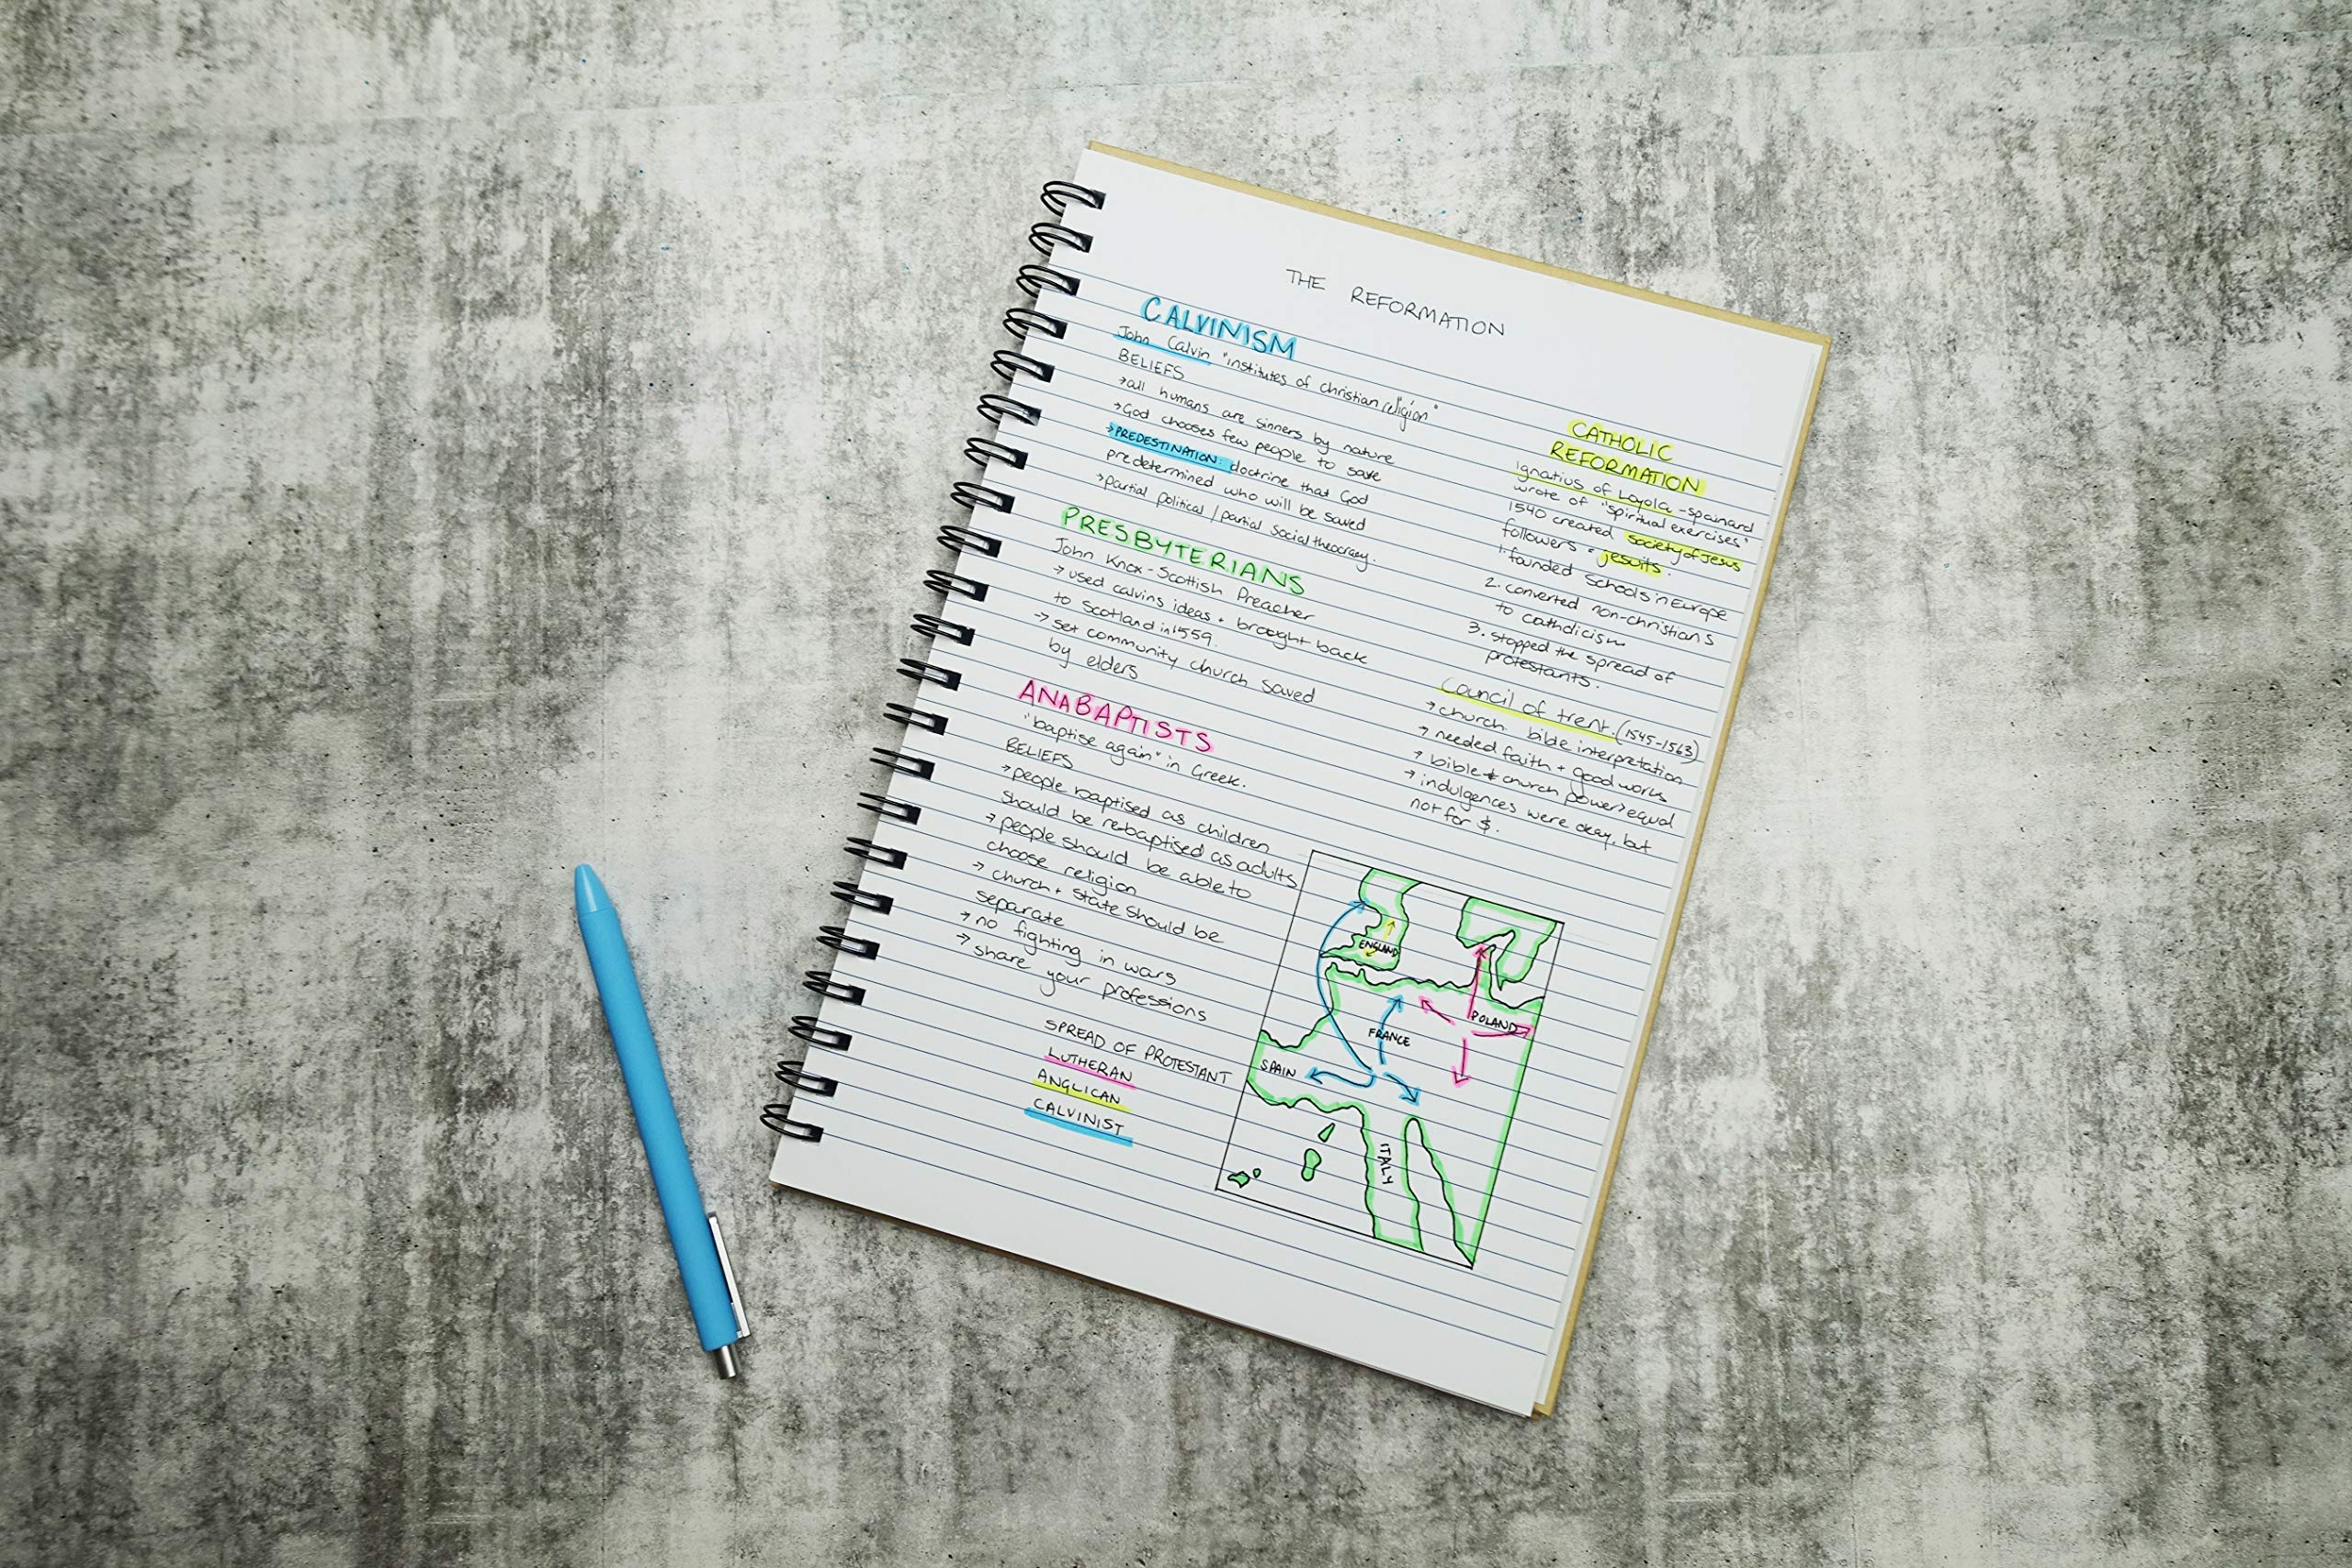 THE REFORMATION
CALVINISM
John Calvin "institutes of christian religion"
BELIEFS
→all humans are sinners by nature
→God chooses few people to save
→PREDESTINATION: doctrine that God
predetermined who will be saved
→partial political / partial social theocracy.
PRESBYTERIANS
John Knox - Scottish Preacher
→ used calvins ideas + brought back
to Scotland in 1559.
→ set community church saved
by elders
ANABAPTISTS
"baptise again" in Greek.
BELIEFS
→people baptised as children
should be rebaptised as adults
→ people should be able to
choose religion
→ church + state should be
separate
→ no fighting in wars
→ share your professions
SPREAD OF PROTESTANT
LUTHERAN
ANGLICAN
CALVINIST
CATHOLIC
REFORMATION
Ignatius of Loyola - spainard
wrote of "spiritual exercises"
1540 created society of Jesus
followers = jesuits.
1. founded Schools in Europe
2. converted non-christians
to catholicism
3. stopped the spread of
protestants.
Council of trent. (1545-1563)
→church bible interpretation
→ needed faith + good works
→ bible + church power equal
→ indulgences were okay, but
not for $.
ENGLAND
POLAND
FRANCE
SPAIN
ITALY